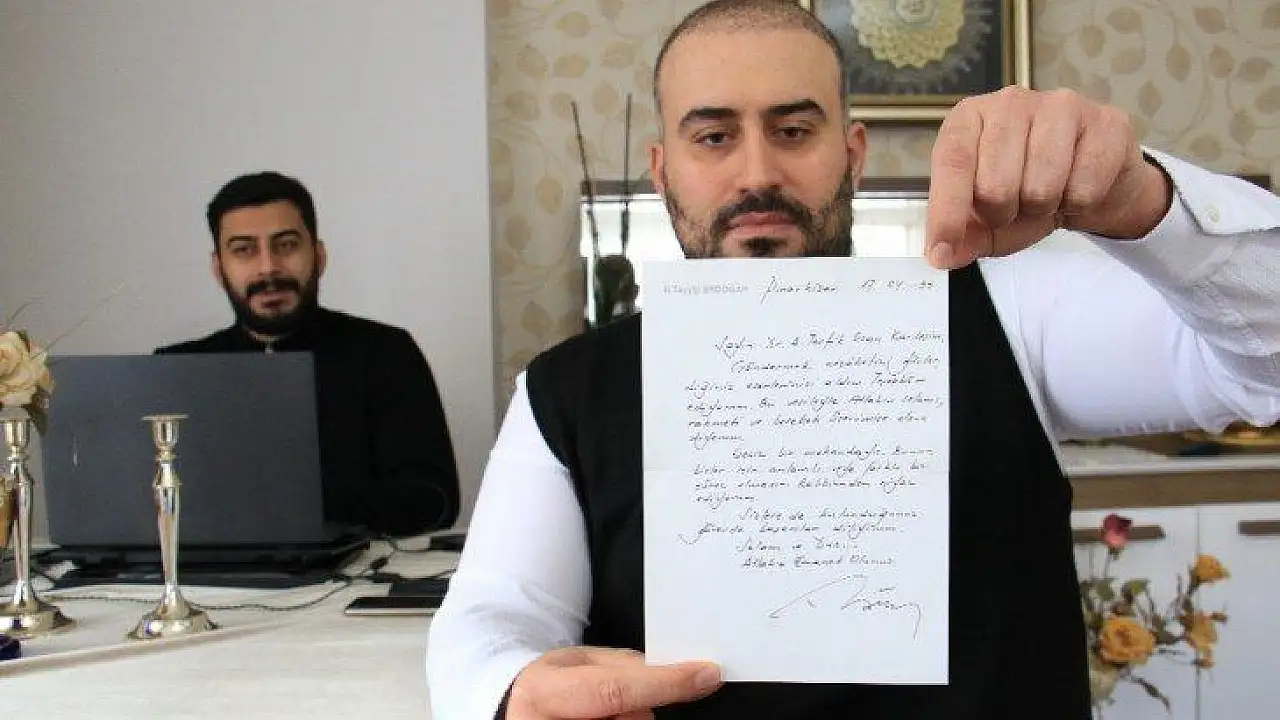 R.TAYYİP ERDOĞAN Pınarhisar 17.04.99
Sayın Dr. A. Tevfik Ozan Kardeşim,
Göndermek nezaketini göster-
diğiniz eserlerinizi aldım Teşekkür
ediyorum. Bu vesileyle Allahın selamı,
rahmeti ve bereketi üzerinize olsun
diyorum.
bir
için anlamlı ve farklı bir
Rabbimden niyaz
ediyorum.
Sizlere de bulunduğunuz
yerde başarılar diliyorum.
Selam ve Dua
Allaha Emanet Olunuz